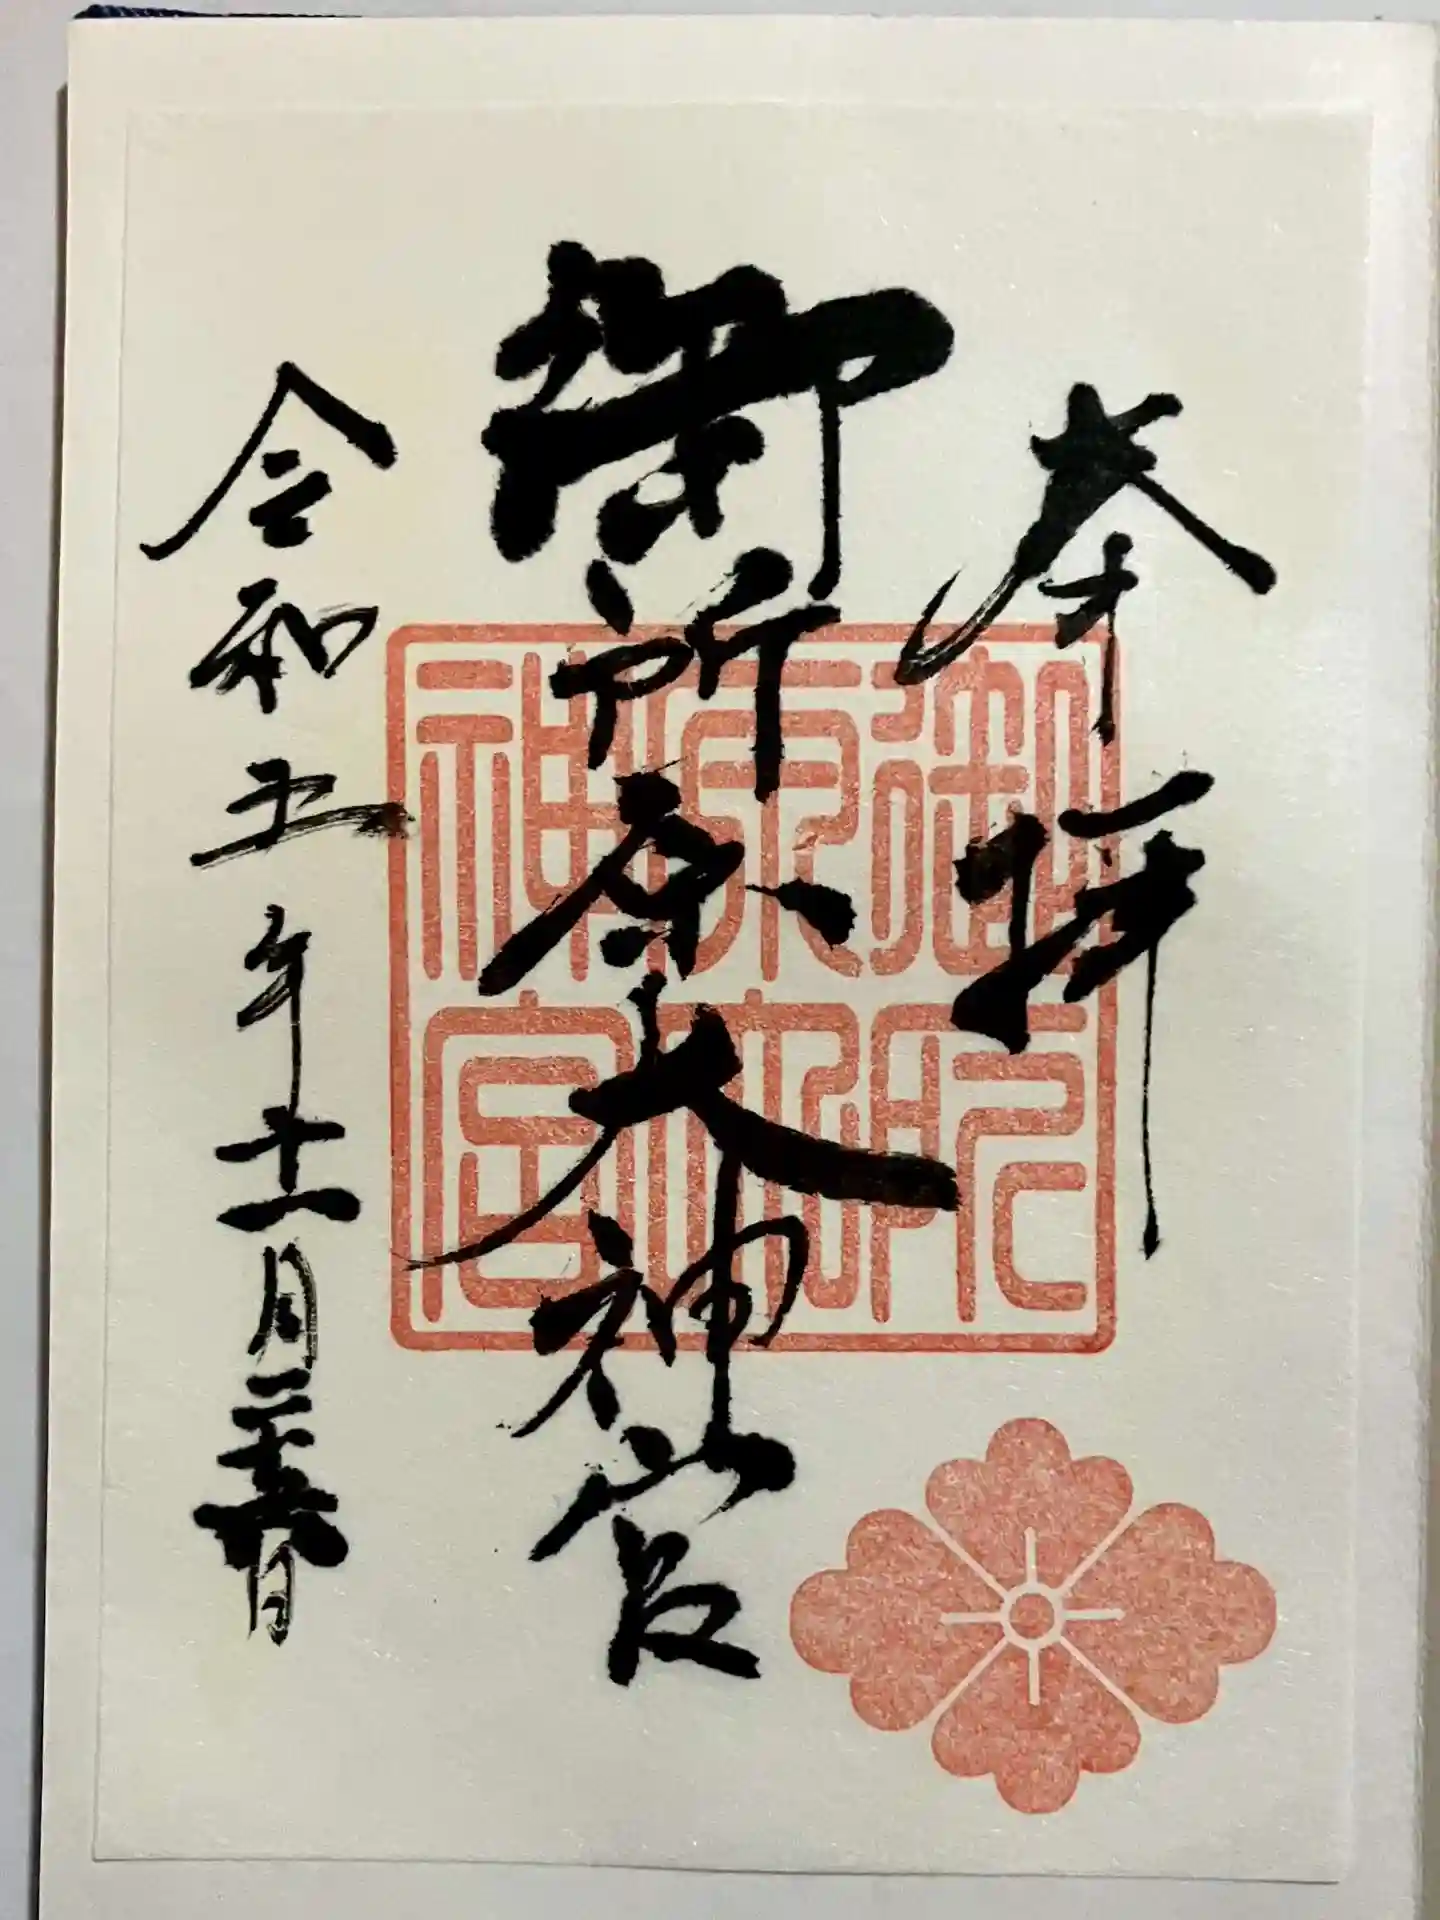 奉拝
御所原大神宮
令和五年十一月二十六日
御所原大神宮